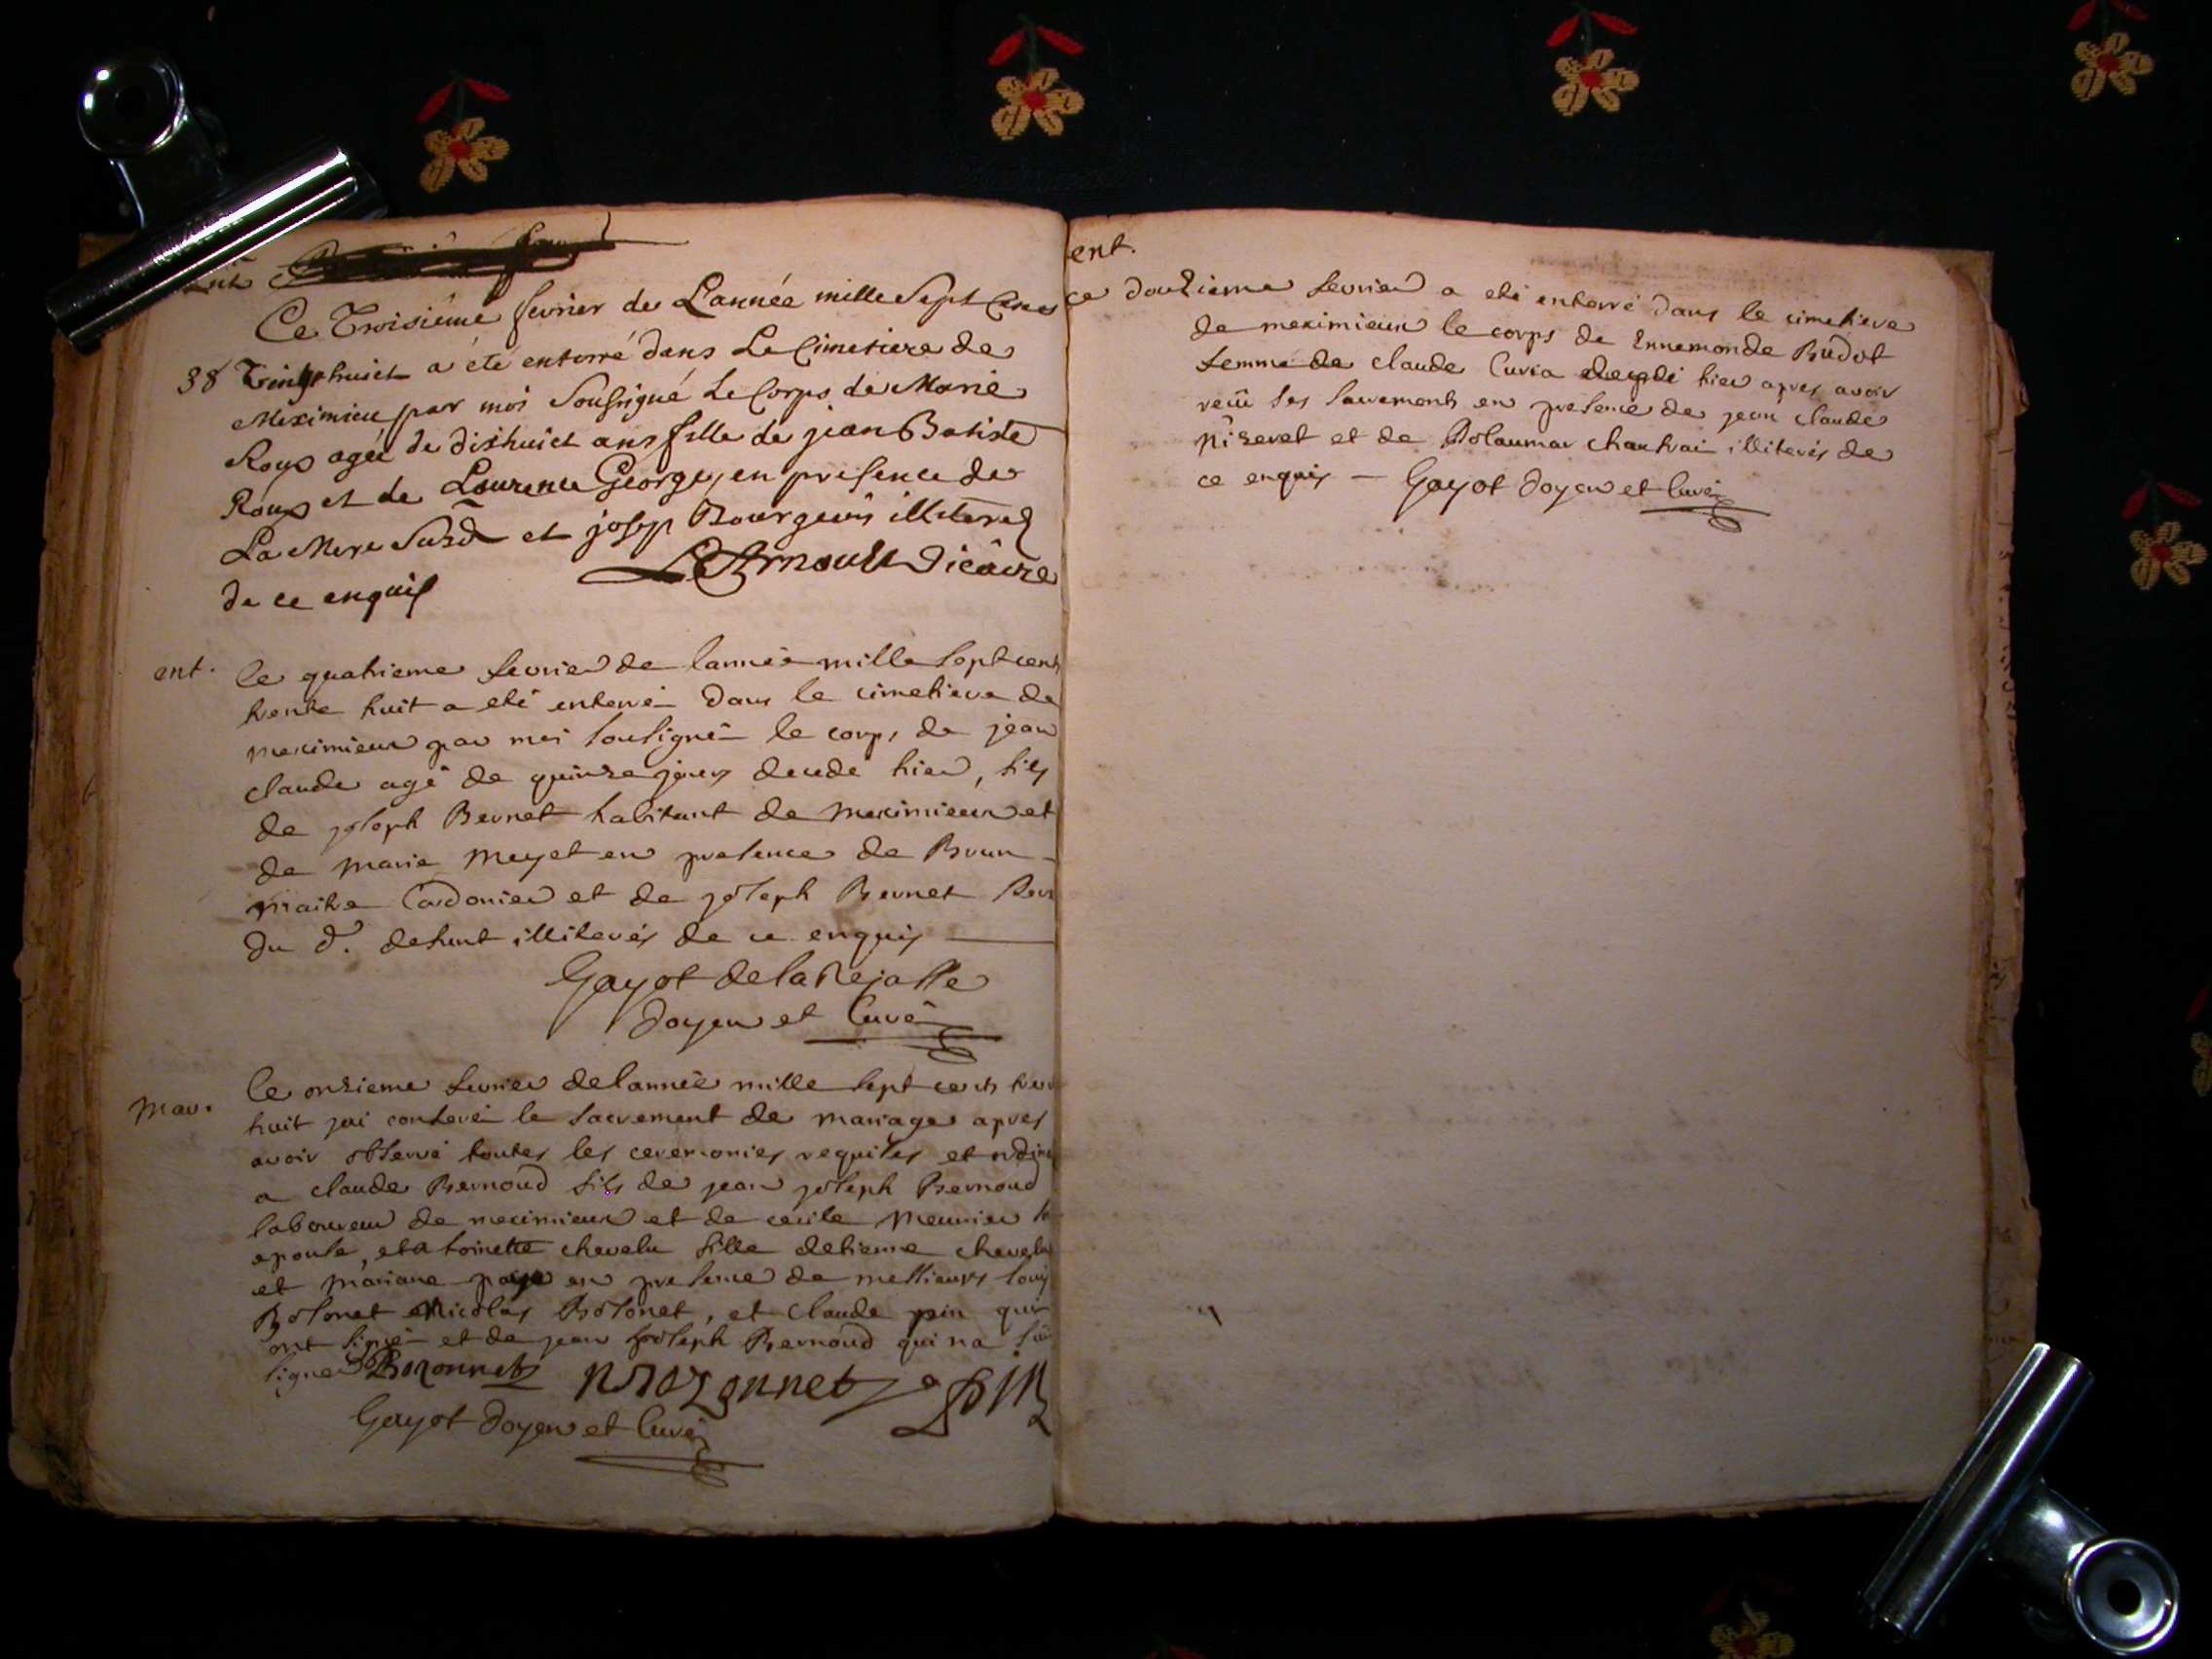 Ce Troisiéme fevrier de L'année mille Sept Cens
38 Trinthuict a été enterré dans Le Cimetiere de
Meximieu par moi Soussigné Le Corps de Marie
Roux agée de dixhuict ans fille de jean Batiste
Roux et de Laurence George, en presence de
La Mere Susd et josep Bourgeois illiteres
de ce enquis Vicaire
ent. le quatrieme fevrier de lannée mille sept cents
trente huit a eté enterré dans le cimetiere de
meximieux par moi sousigné le corps de jean
claude agé de quinze jours decedé hier, fils
de joseph Bernet habitant de meximieux et
de marie meyet en presence de Brun
maitre Cordonier et de joseph Bernet
du d. defunt illiterés de ce enquis
Gayot de la Rejasse
doyen et Curé
mar. le onzieme fevrier de lannée mille sept cents
huit jai conferé le sacrement de mariage apres
avoir observé toutes les ceremonies requises et
a claude Bernoud fils de jean joseph Bernoud
laboureur de meximieux et de cecile meunier
epouse, et a toinette chevelu fille detienne chevelu
et mariane en presence de messieurs louis
Bosonet Nicolas Bosonet, et claude pin qui
ont signé et de jean joseph Bernoud qui na sû
signer Bozonnet N Bozonnet pin
Gayot doyen et Curé
ent.
ce douzieme fevrier a eté enterré dans le cimetiere
de meximieux le corps de Ennemonde Budot
femme de claude Curia decedé hier apres avoir
reçû ses sacrements en presence de jean claude
Nizeret et de chantrai illiterés de
ce enquis — Gayot doyen et Curé